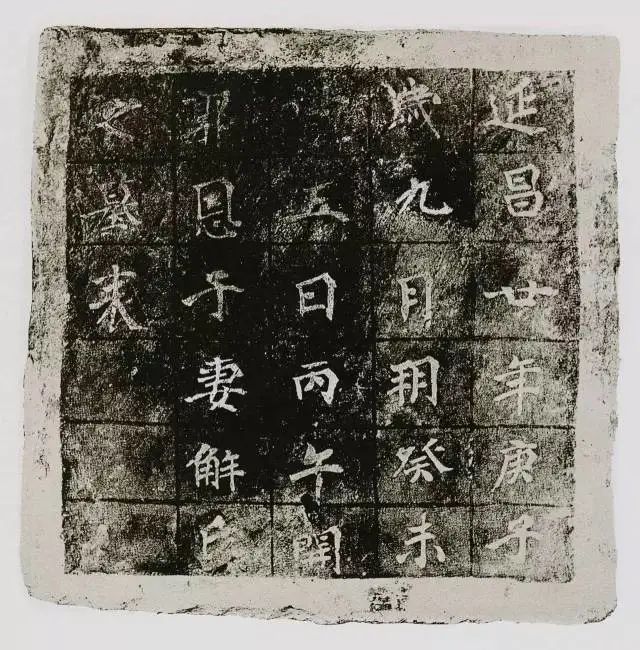 延昌廿年庚子
歲九月朔癸未
五日丙午
耶恩子妻解氏
之墓表